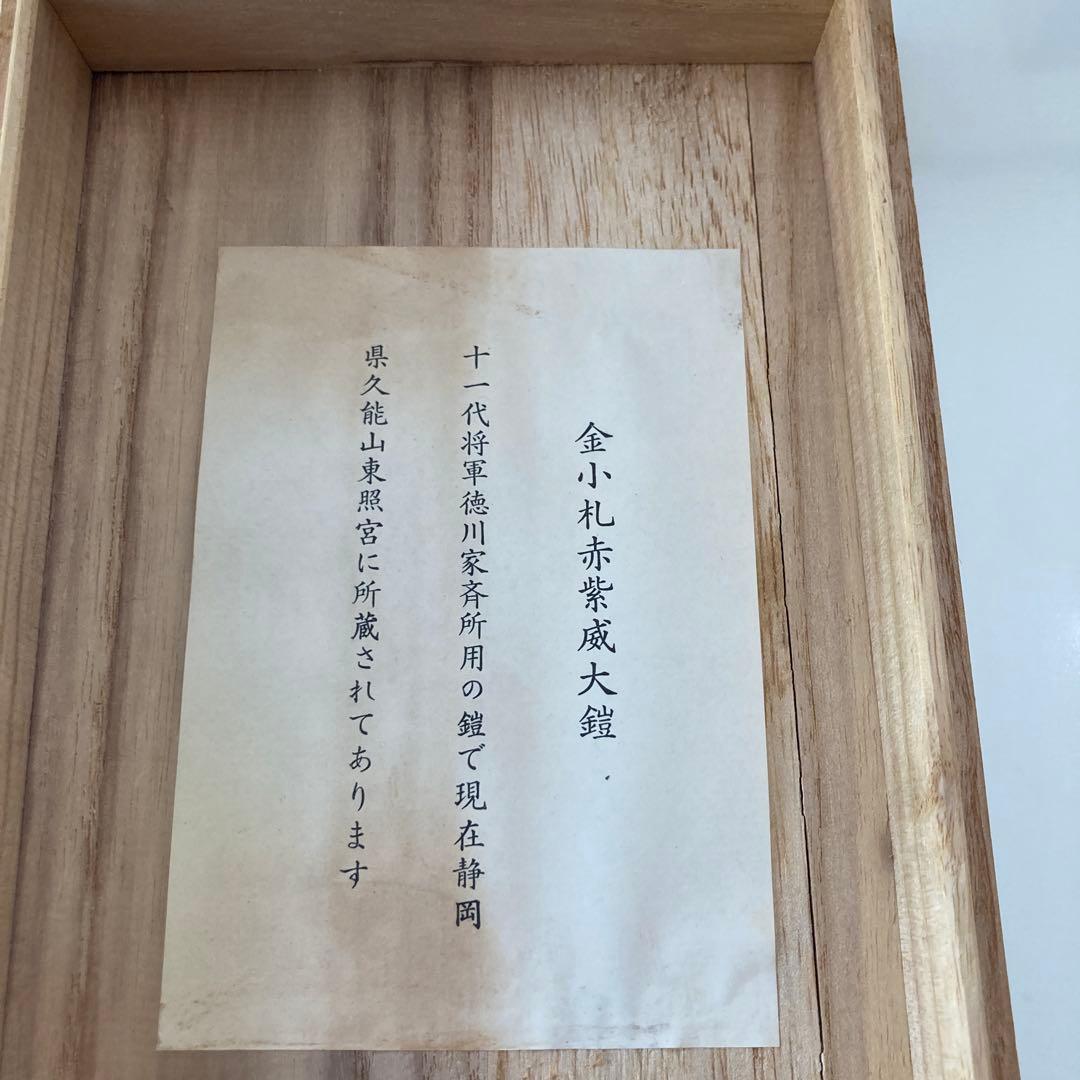 金小札赤紫威大鎧
十一代将軍徳川家斉所用の鎧で現在静岡
県久能山東照宮に所蔵されてあります